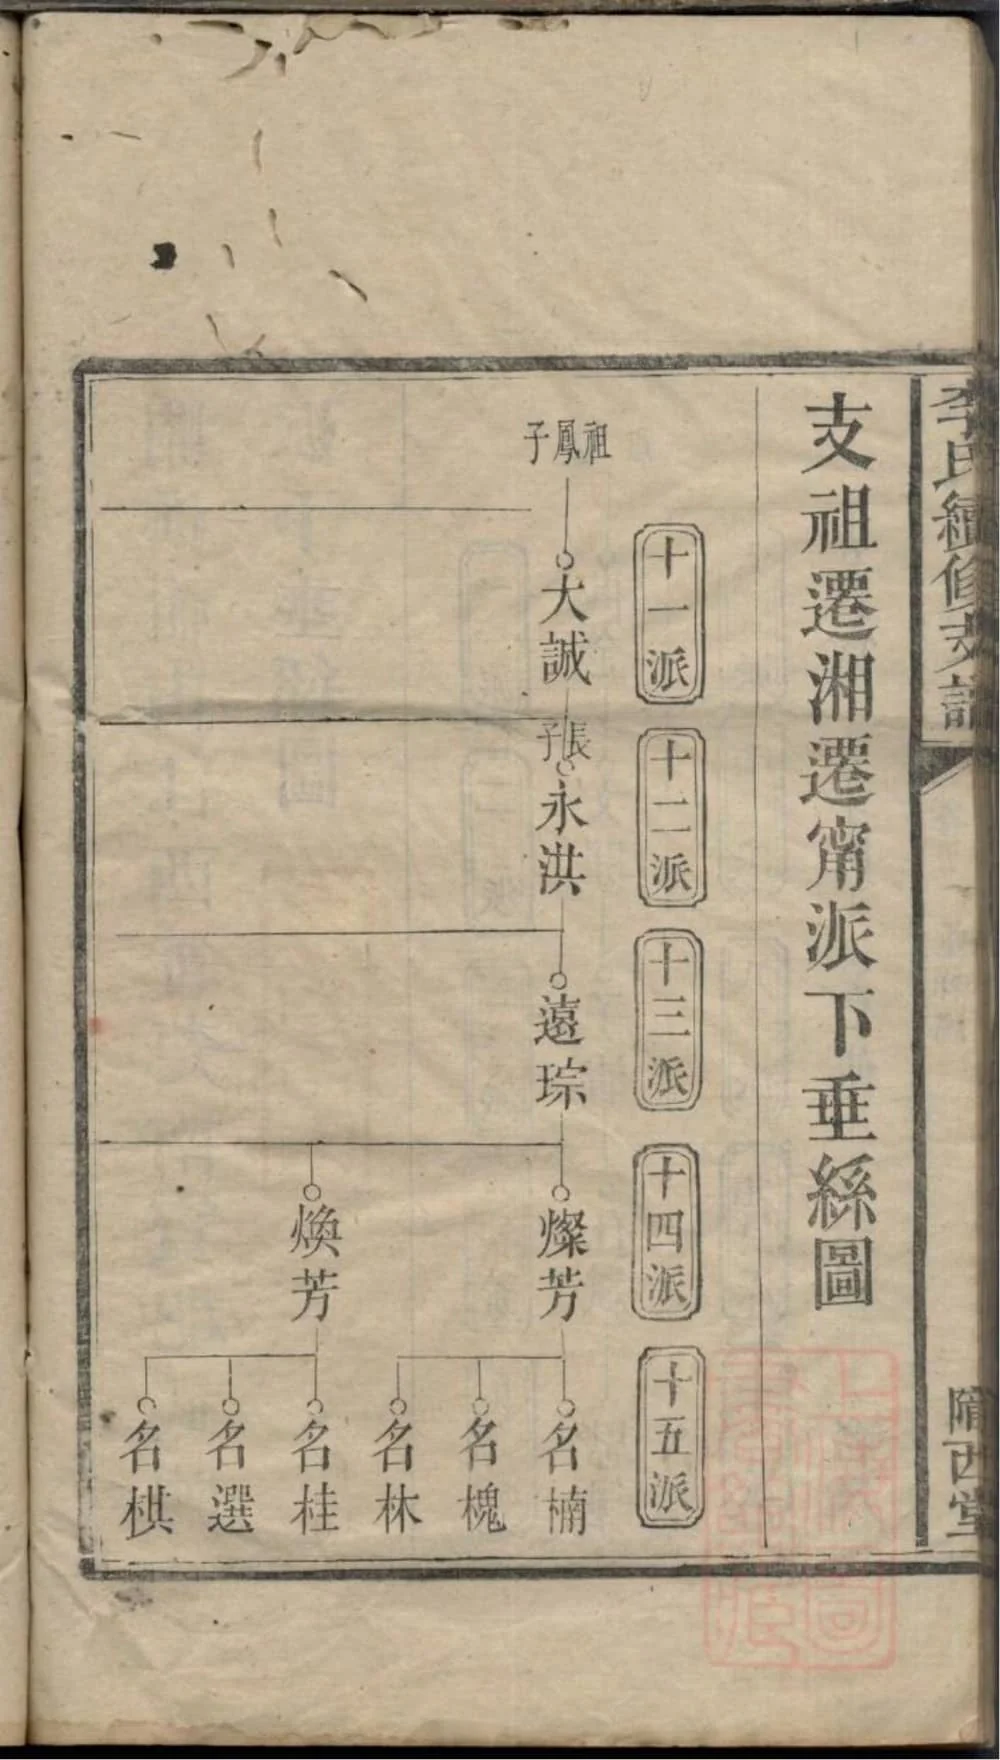 李氏續修支譜
隴西堂
支祖遷湘遷甯派下垂絲圖
十一派
十二派
十三派
十四派
十五派
祖鳳子
大誠
長子
永洪
遠琮
燦芳
煥芳
名楠
名槐
名林
名桂
名選
名棋